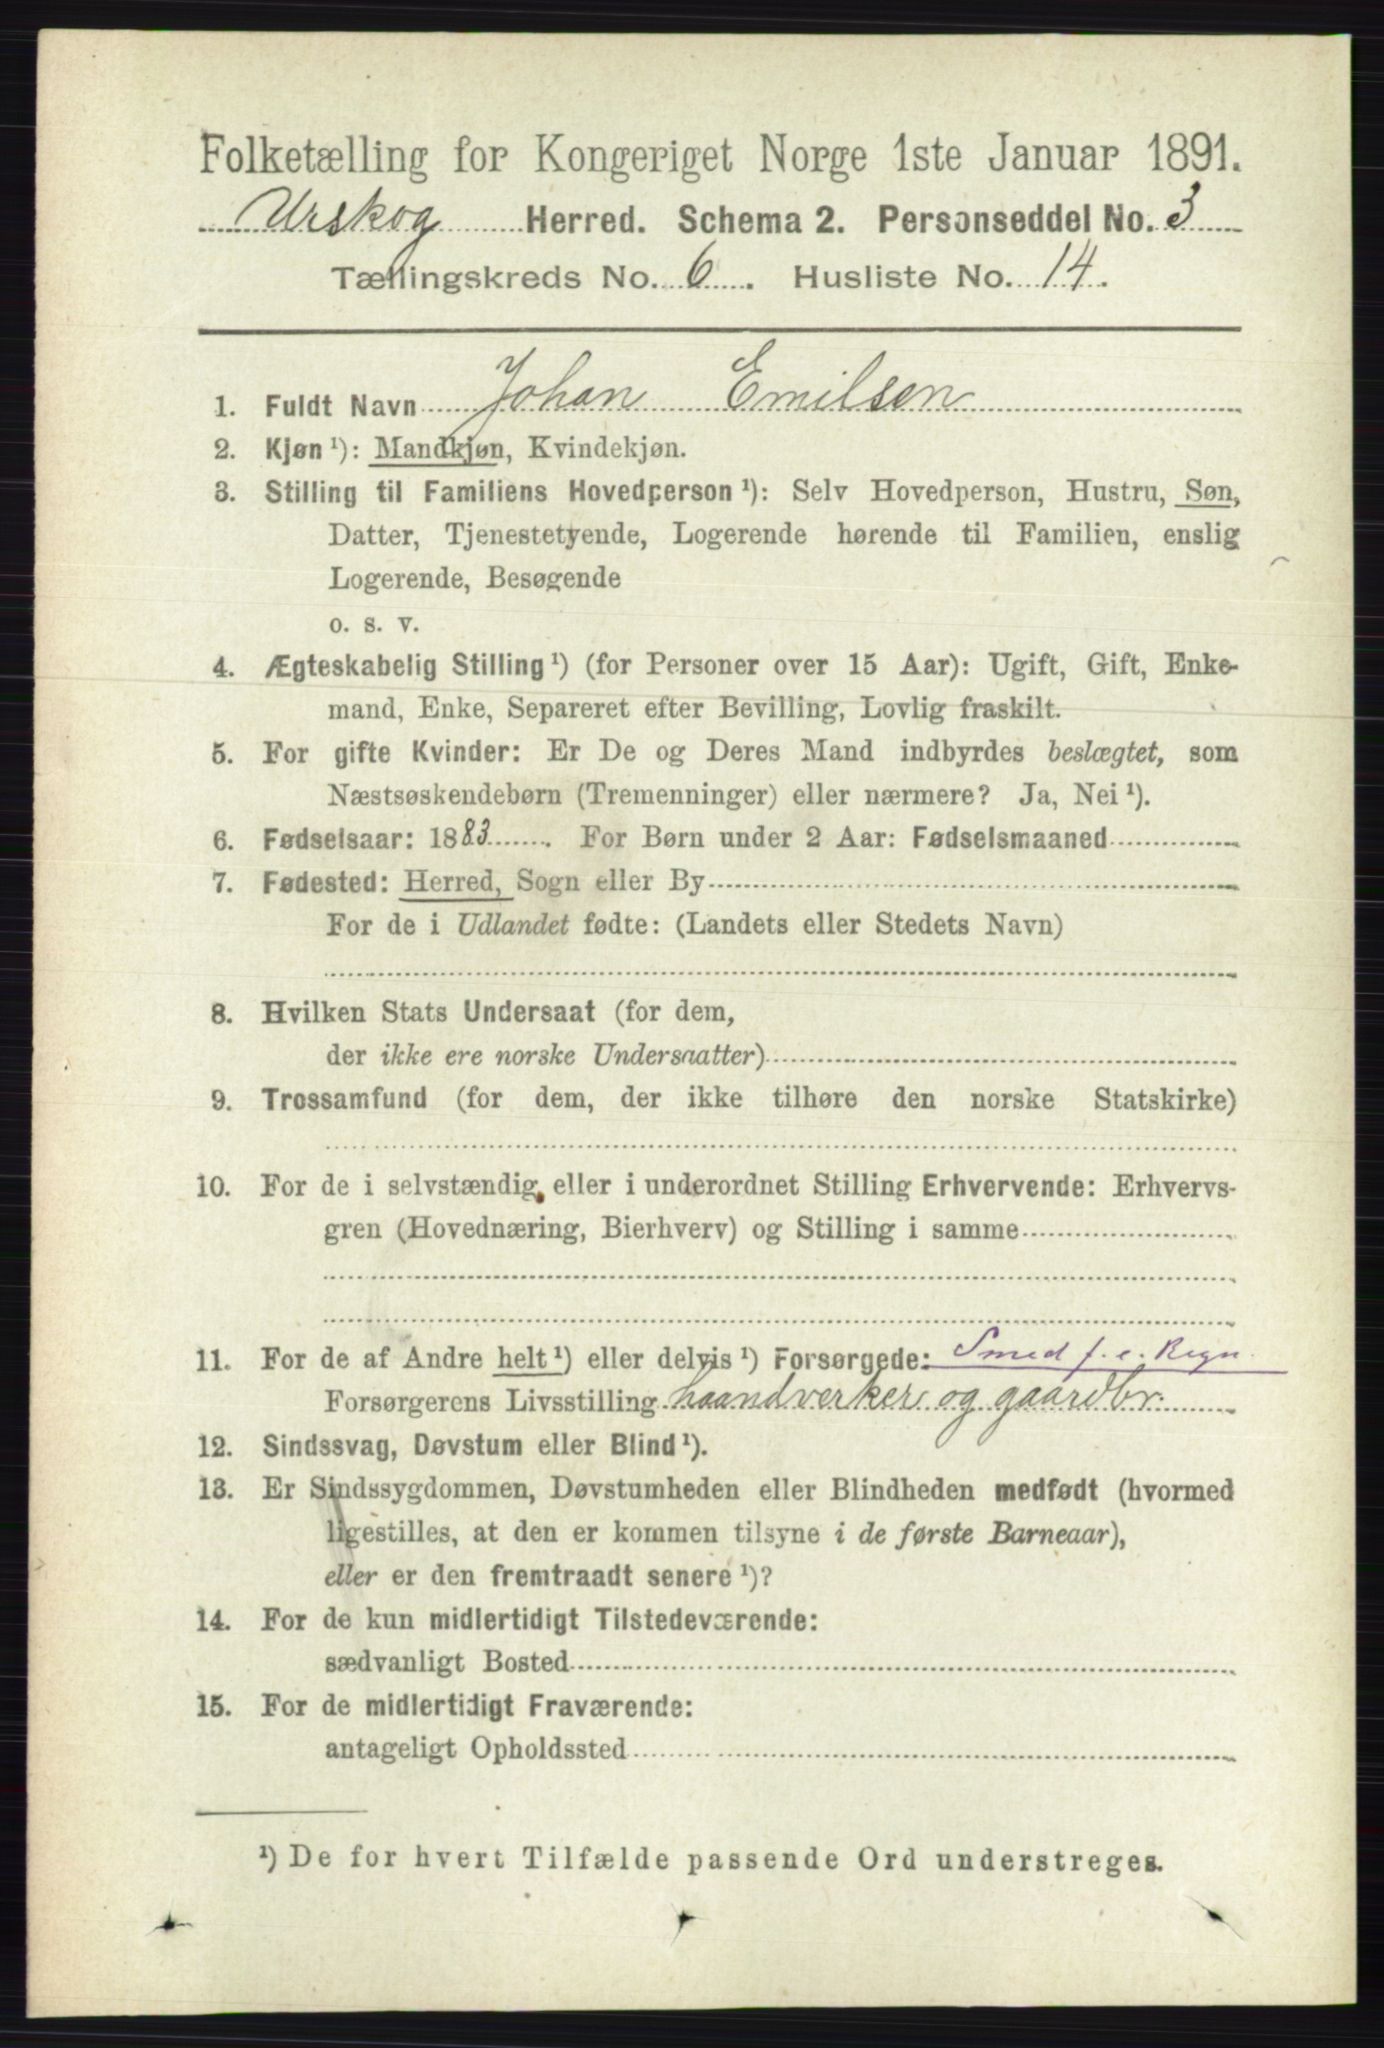 Folketælling for Kongeriget Norge 1ste Januar 1891.
Urskog Herred. Schema 2. Personseddel No. 3
Tællingskreds No. 6. Husliste No. 14.
1. Fuldt Navn Johan Emilsen
2. Kjøn ¹): Mandkjøn, Kvindekjøn.
3. Stilling til Familiens Hovedperson ¹): Selv Hovedperson, Hustru, Søn,
Datter, Tjenestetyende, Logerende hørende til Familien, enslig
Logerende, Besøgende
o. s. v.
4. Ægteskabelig Stilling ¹) (for Personer over 15 Aar): Ugift, Gift, Enke-
mand, Enke, Separeret efter Bevilling, Lovlig fraskilt.
5. For gifte Kvinder: Er De og Deres Mand indbyrdes beslægtet, som
Næstsøskendebørn (Tremenninger) eller nærmere? Ja, Nei ¹).
6. Fødselsaar: 1883. For Børn under 2 Aar: Fødselsmaaned
7. Fødested: Herred, Sogn eller By
For de i Udlandet fødte: (Landets eller Stedets Navn)
8. Hvilken Stats Undersaat (for dem,
der ikke ere norske Undersaatter)
9. Trossamfund (for dem, der ikke tilhøre den norske Statskirke)
10. For de i selvstændig eller i underordnet Stilling Erhvervende: Erhvervs-
gren (Hovednæring, Bierhverv) og Stilling i samme
11. For de af Andre helt ¹) eller delvis ¹) Forsørgede: Smed f. e. Regn.
Forsørgerens Livsstilling haandverker og gaardbr.
12. Sindssvag, Døvstum eller Blind ¹).
13. Er Sindssygdommen, Døvstumheden eller Blindheden medfødt (hvormed
ligestilles, at den er kommen tilsyne i de første Barneaar),
eller er den fremtraadt senere ¹)?
14. For de kun midlertidigt Tilstedeværende:
sædvanligt Bosted
15. For de midlertidigt Fraværende:
antageligt Opholdssted
¹) De for hvert Tilfælde passende Ord understreges.